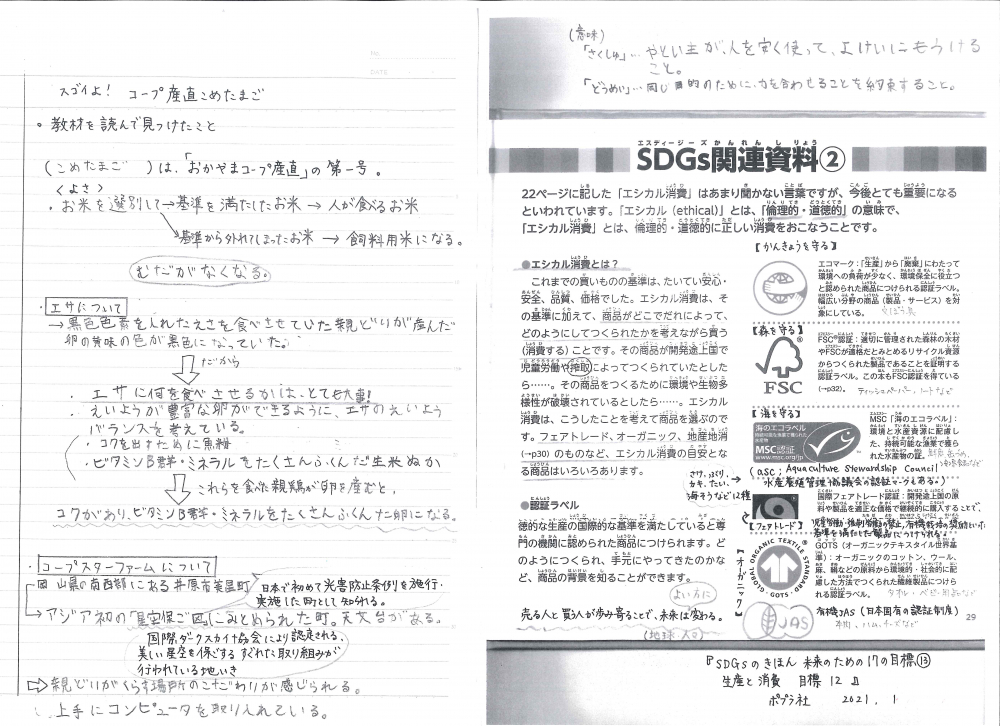 No.
DATE
スゴイよ! コープ産直こめたまご
。教材を読んで見つけたこと
(こめたまご )は、「おかやまコープ産直」の第一号。
くよさ〉
・お米を選別して→基準を満たしたお米→人が食べるお米
基準から外れてしまったお米→飼料用米になる。
むだがなくなる。
・エサについて
→黒色色素を入れたえさを食べさせていた親どりが産んだ
卵の黄味の色が黒色になっていた。
だから
・エサに何を食べさせるかは、とても大事!
・えいようが豊富な卵ができるように、エサのえいよう
バランスを考えている。
・コクを出すために魚粉
・ビタミンB群・ミネラルをたくさんふくんだ生米ぬか
これらを食べた親鶏が卵を産むと、
コクがあり、ビタミンB群・ミネラルをたくさんふくんだ卵になる。
・コープスターファームについて
岡山県の南西部にある井原市美星町
日本で初めて光害防止条例を施行・
実施した町として知られる。
→アジア初の「星空保ご区」にみとめられた町。天文台がある。
国際ダークスカイ協会により認定される、
美しい星空を保ごする すぐれた取り組みが
行われている地いき
⇨親どりがくらす場所のこだわりが感じられる。
上手にコンピュータを取り入れている。
(意味)
「さくしゅ」…やとい主が、人を安く使って、よけいにもうける
こと。
「どうめい」…同じ目的のために、力を合わせることを約束すること。
エスディージーズかんれんしりょう
SDGs関連資料②
22ページに記した「エシカル消費」はあまり聞かない言葉ですが、今後とても重要になる
といわれています。「エシカル(ethical)」とは、「倫理的・道徳的」の意味で、
「エシカル消費」とは、倫理的・道徳的に正しい消費をおこなうことです。
●エシカル消費とは?
これまでの買いものの基準は、たいてい安心・
安全、品質、価格でした。エシカル消費は、そ
の基準に加えて、商品がどこでだれによって、
どのようにしてつくられたかを考えながら買う
(消費する)ことです。その商品が開発途上国で
児童労働や搾取によってつくられていたとした
ら……。その商品をつくるために環境や生物多
様性が破壊されているとしたら……。エシカル
消費は、こうしたことを考えて商品を選ぶので
す。フェアトレード、オーガニック、地産地消
(→p30)のものなど、エシカル消費の目安とな
る商品はいろいろあります。
●認証ラベル
徳的な生産の国際的な基準を満たしていると専
門の機関に認められた商品につけられます。ど
のようにつくられ、手元にやってきたのかな
ど、商品の背景を知ることができます。
よい方に
売る人と買う人が歩み寄ることで、未来は変わる。
(地球 人々)
【かんきょうを守る】
エコマーク:「生産」から「廃棄」にわたって
環境への負荷が少なく、環境保全に役立つ
と認められた商品につけられる認証ラベル。
幅広い分野の商品(製品・サービス)を対
象にしている。
【森を守る】
FSC
FSC®認証:適切に管理された森林の木材
やFSCが適格だとみとめるリサイクル資源
からつくられた製品であることを証明する
認証ラベル。この本もFSC認証を得ている
(→p32)。
ティッシュペーパー、ノートなど
【海を守る】
海のエコラベル
持続可能な漁業で獲られた水産物
MSC認証
www.msc.org/jp
MSC「海のエコラベル」:
環境と水産資源に配慮し
た、持続可能な漁業で獲ら
れた水産物の証。
(ASC; Aquaculture Stewardship Council
水産養殖管理協議会の認証マークもある。)
カキ、たい、
海そうなど12種
【フェアトレード】
国際フェアトレード認証:開発途上国の原
料や製品を適正な価格で継続的に購入すること。
基準を満たした製品につけられる。
【オーガニック】
GLOBAL ORGANIC TEXTILE STANDARD
GOTS
GOTS(オーガニックテキスタイル世界基
準):オーガニックのコットン、ウール、
麻、絹などの原料から環境的・社会的に配
慮した方法でつくられた繊維製品につけら
れる認証ラベル。
JAS
有機JAS(日本固有の認証制度)
29
『SDGsのきほん 未来のための17の目標⑬
生産と消費 目標12』
ポプラ社 2021.1